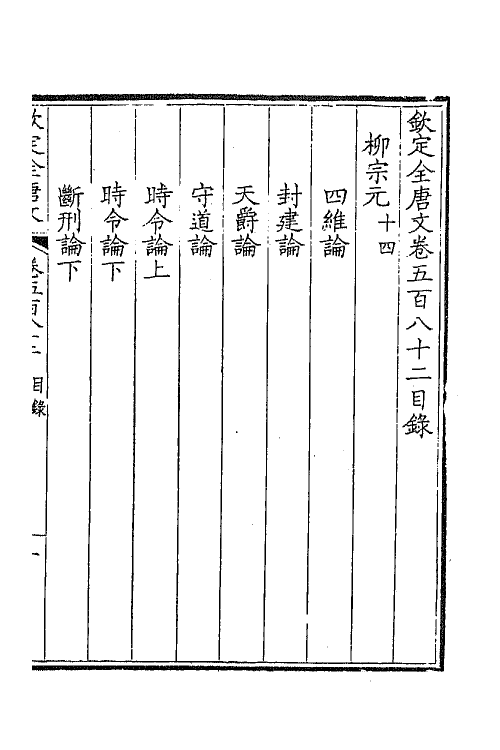 欽定全唐文卷五百八十二目錄
柳宗元十四
四維論
封建論
天爵論
守道論
時令論上
時令論下
斷刑論下
欽定全唐文 卷五百八十二 目錄 一